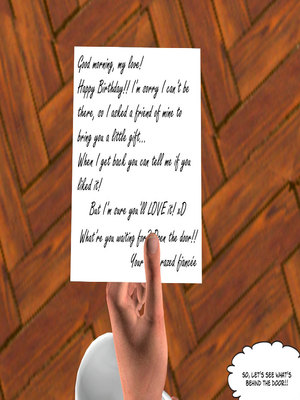 Good morning, my love!
Happy Birthday!! I'm sorry I can't be
there, so I asked a friend of mine to
bring you a little gift...
When I get back you can tell me if you
liked it!
But I'm sure you'll LOVE it! xD
What're you waiting for? Open the door!!
Your razed fiancée
SO, LET'S SEE WHAT'S
BEHIND THE DOOR!!